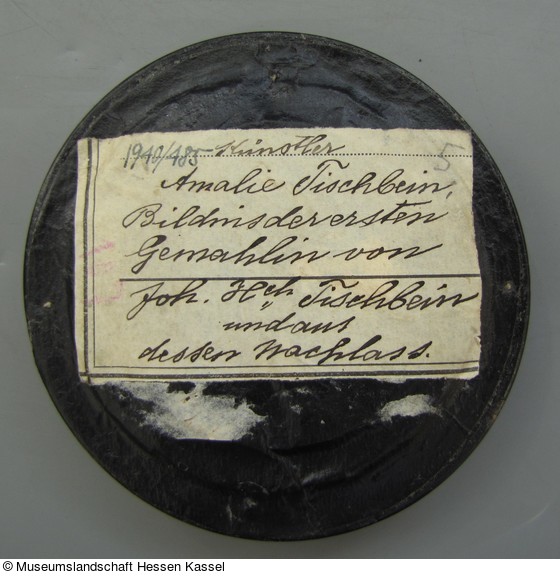 1940/485 Künstler 5
Amalie Tischbein,
Bildnis der ersten
Gemahlin von
Joh. Hch Tischbein
und aus
dessen Nachlass.
© Museumslandschaft Hessen Kassel